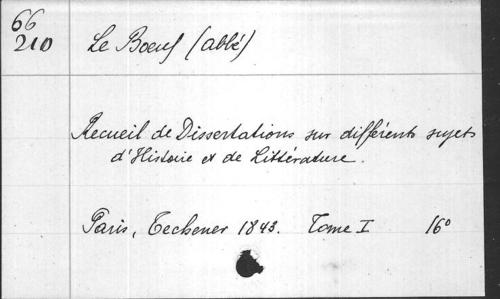 66
210
Le Boeuf (abbé)
Recueil de Dissertations sur différents sujets
d'Histoire et de Littérature.
Paris, Techener 1843. Tome I 16°